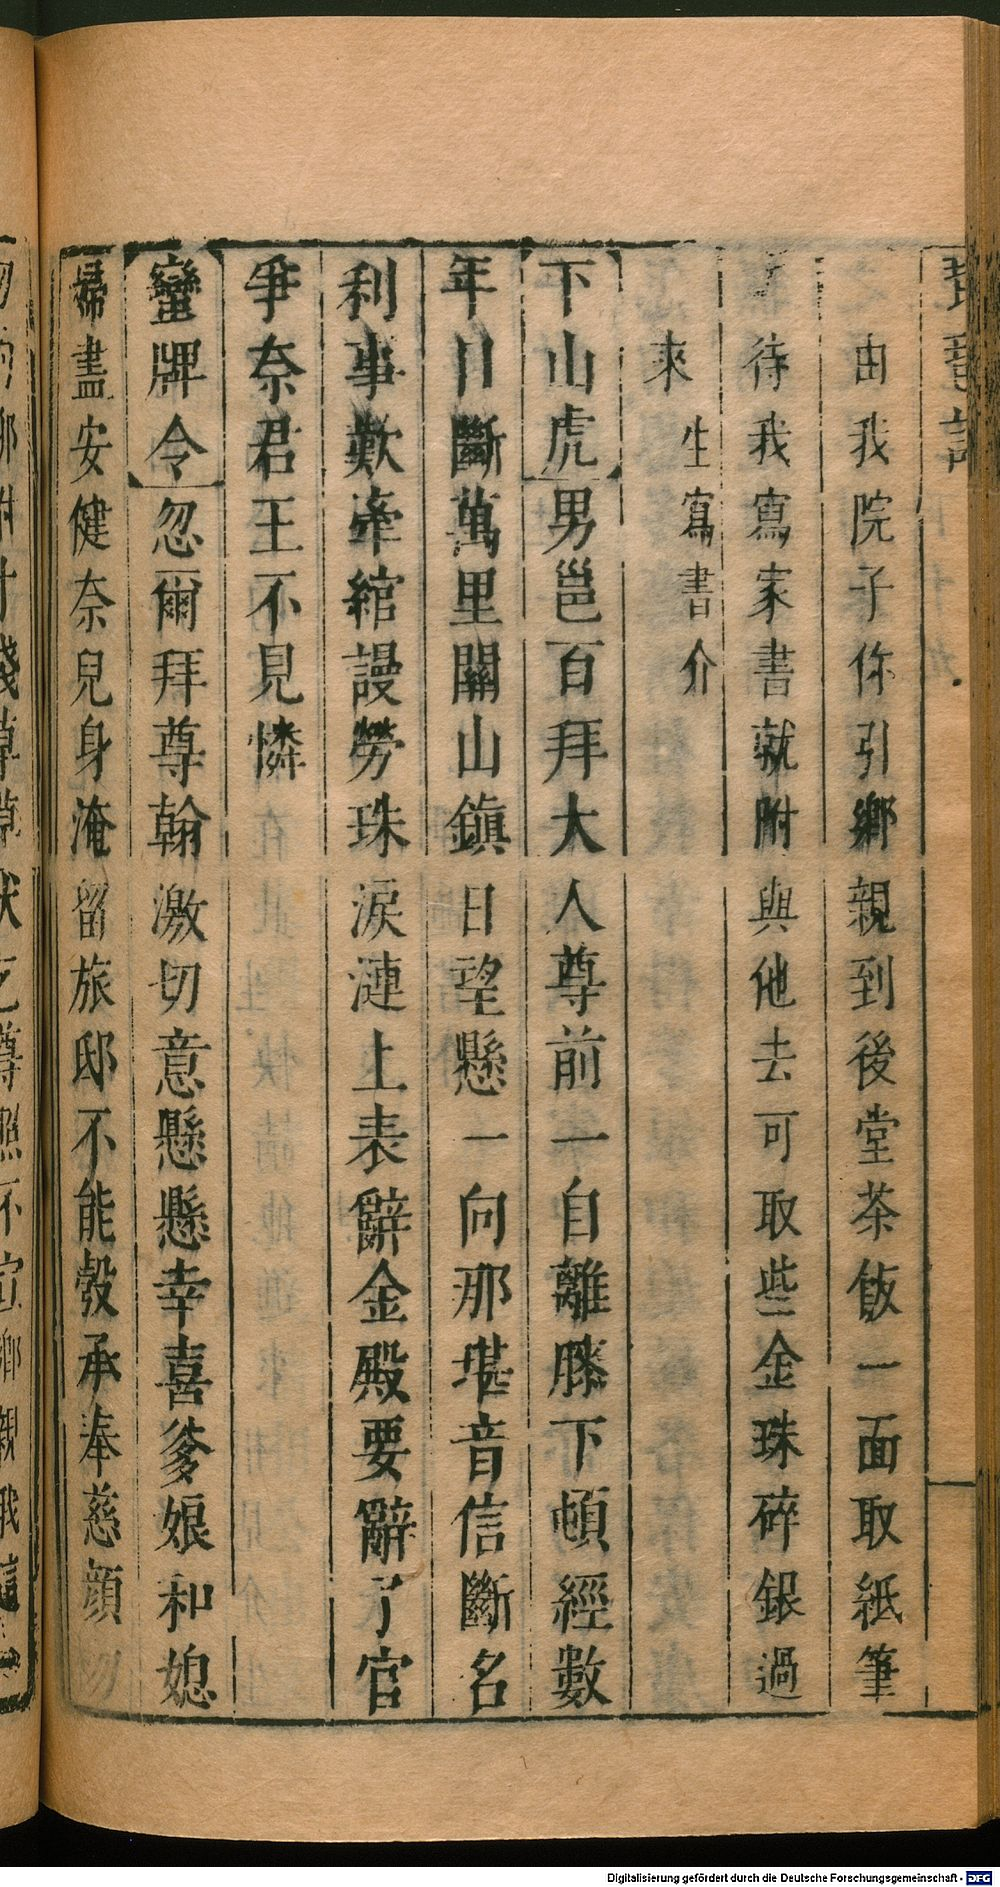 由我院子你引鄉親到後堂茶飯一面取紙筆
待我寫家書就附與他去可取些金珠碎銀過
來　生寫書介
下山虎男邕百拜大人尊前一自離膝下頓經數
年目斷萬里關山鎮日望懸一向那堪音信斷名
利事歎牽綰謾勞珠淚漣上表辭金殿要辭了官
爭奈君王不見憐
蠻牌令忽爾拜尊翰激切意懸懸幸喜爹娘和媳
婦盡安健奈兒身淹留旅邸不能彀承奉慈顔
Digitalisierung gefördert durch die Deutsche Forschungsgemeinschaft - DFG